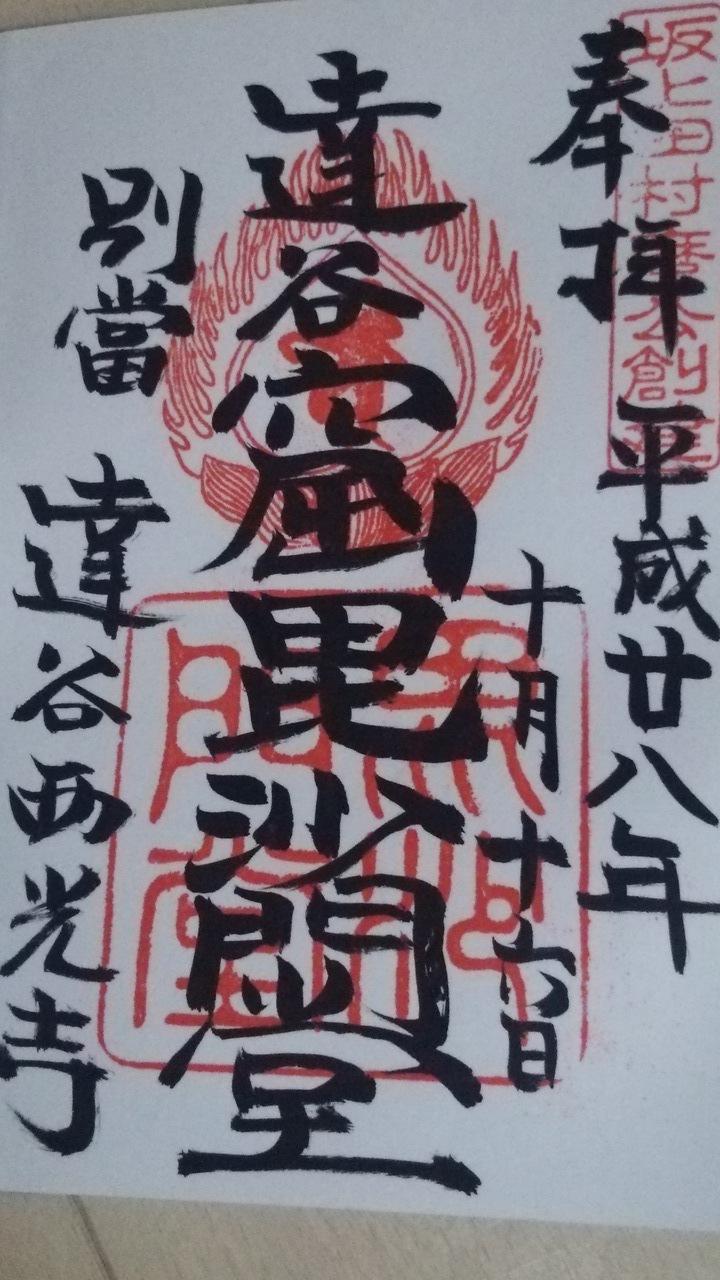 坂上田村麿公創建
奉拝 平成廿八年
十月十六日
達谷窟毘沙門堂
別當 達谷西光寺